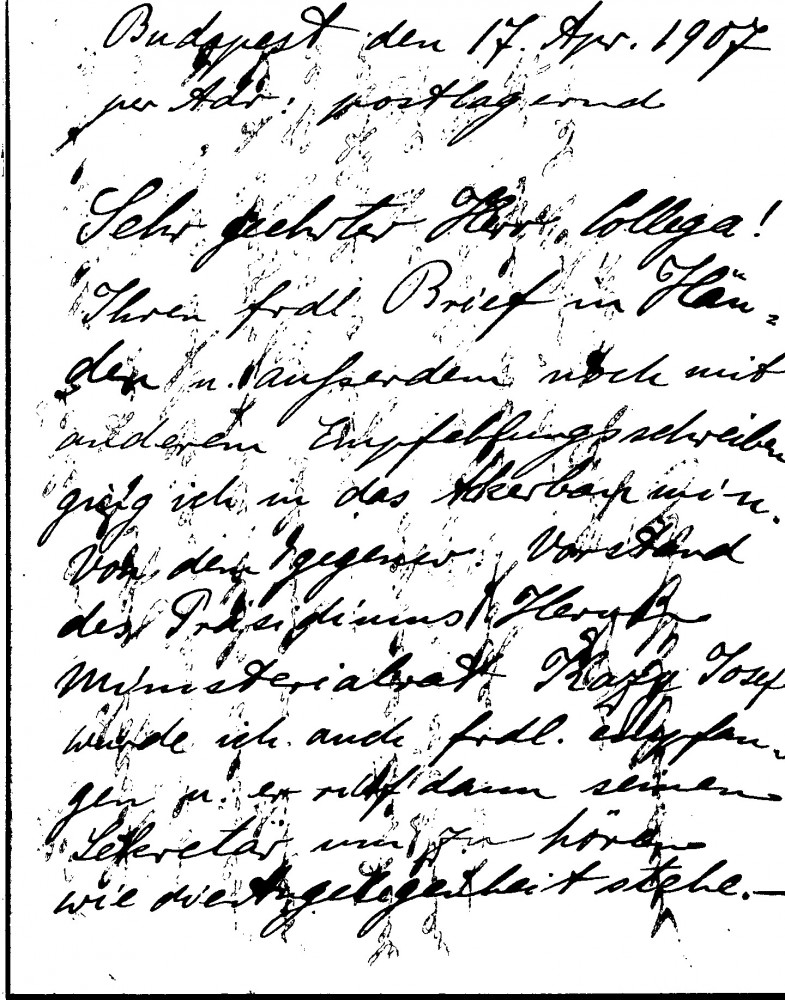 Budapest den 17. Apr. 1907
per Adr: postlagernd
Sehr geehrter Herr Collega!
Ihren frdl Brief in Hän=
den u. außerdem noch mit
anderem Empfehlungsschreiben
ging ich in das Akerbaumin.
Von dem gegenw. Vorstand
des Präsidiums Herrn
Ministerialrath Kazy Josef
wurde ich auch frdl. empfan-
gen u. er rief dann seinen
Sekretär um zu hören
wie die Angelegenheit stehe.—